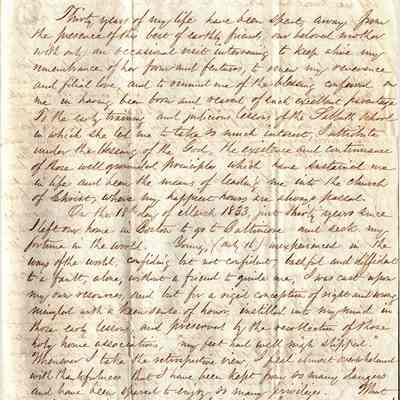 Thirty years of my life have been spent away from
the presence of this best of earthly friends, our beloved mother
with only an occasional visit intervening to keep alive my
remembrance of her form and features, to renew my reverence
and filial love, and to remind me of the blessing conferred on
me in having been born and reared of such excellent parentage
To the early training and judicious lessons of the Sabbath School
in which she led me to take so much interest, I attribute
under the blessing of God, the existence and continuance
of those well grounded principles which have sustained me
in life and been the means of leading me into the church
of Christ, where my happiest hours are always passed.
On the 18th day of March 1833, just thirty years since
I left our home in Boston to go to Baltimore and seek my
fortune in the world. Young, (only 18) inexperienced in the
ways of the world, confiding but not confident, bashful and diffident
to a fault, alone, without a friend to guide me, I was cast upon
my own resources, and but for a rigid conception of right and wrong
mingled with a keen sense of honor, instilled into my mind in
those early lessons, and preserved by the recollection of those
holy home associations, my feet had well nigh slipped.
Whenever I take the retrospective view I feel almost overwhelmed
with thankfulness that I have been kept from so many dangers
and have been spared to enjoy so many privileges.